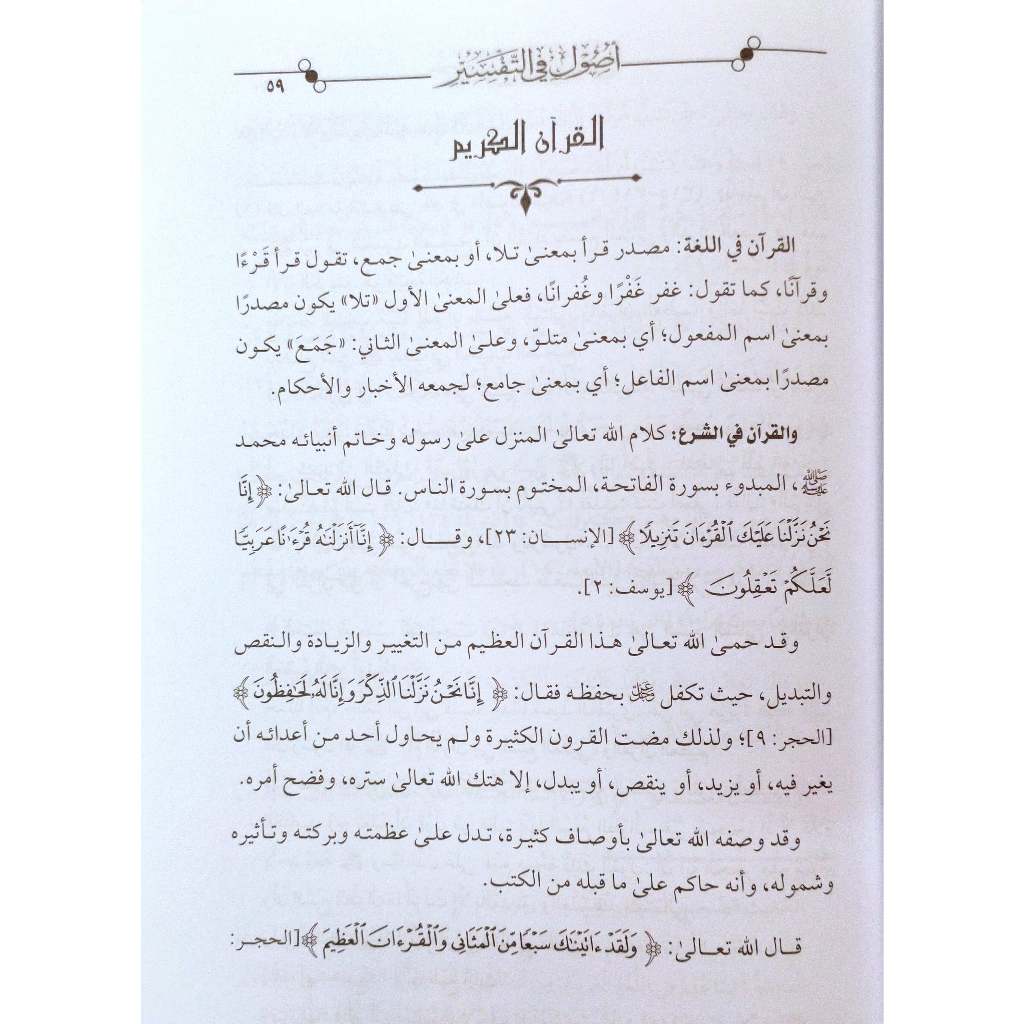 أصول في التفسير
٥٩
القرآن الكريم
القرآن في اللغة: مصدر قرأ بمعنىٰ تلا، أو بمعنىٰ جمع، تقول قرأ قَرْءًا
وقرآنًا، كما تقول: غفر غَفْرًا وغُفرانًا، فعلىٰ المعنىٰ الأول «تلا» يكون مصدرًا
بمعنىٰ اسم المفعول؛ أي بمعنىٰ متلوّ، وعلىٰ المعنىٰ الثاني: «جَمَعَ» يكون
مصدرًا بمعنىٰ اسم الفاعل؛ أي بمعنىٰ جامع؛ لجمعه الأخبار والأحكام.
والقرآن في الشرع: كلام الله تعالىٰ المنزل علىٰ رسوله وخاتم أنبيائه محمد
ﷺ، المبدوء بسورة الفاتحة، المختوم بسورة الناس. قال الله تعالىٰ: ﴿إِنَّا
نَحْنُ نَزَّلْنَا عَلَيْكَ ٱلْقُرْءَانَ تَنزِيلًا﴾ [الإنسان: ٢٣]، وقال: ﴿إِنَّآ أَنزَلْنَٰهُ قُرْءَٰنًا عَرَبِيًّا
لَّعَلَّكُمْ تَعْقِلُونَ﴾ [يوسف: ٢].
وقد حمىٰ الله تعالىٰ هذا القرآن العظيم من التغيير والزيادة والنقص
والتبديل، حيث تكفل عز وجل بحفظه فقال: ﴿إِنَّا نَحْنُ نَزَّلْنَا ٱلذِّكْرَ وَإِنَّا لَهُۥ لَحَٰفِظُونَ﴾
[الحجر: ٩]؛ ولذلك مضت القرون الكثيرة ولم يحاول أحد من أعدائه أن
يغير فيه، أو يزيد، أو ينقص، أو يبدل، إلا هتك الله تعالىٰ ستره، وفضح أمره.
وقد وصفه الله تعالىٰ بأوصاف كثيرة، تدل علىٰ عظمته وبركته وتأثيره
وشموله، وأنه حاكم علىٰ ما قبله من الكتب.
قال الله تعالىٰ: ﴿وَلَقَدْ ءَاتَيْنَٰكَ سَبْعًا مِّنَ ٱلْمَثَانِى وَٱلْقُرْءَانَ ٱلْعَظِيمَ﴾ [الحجر: